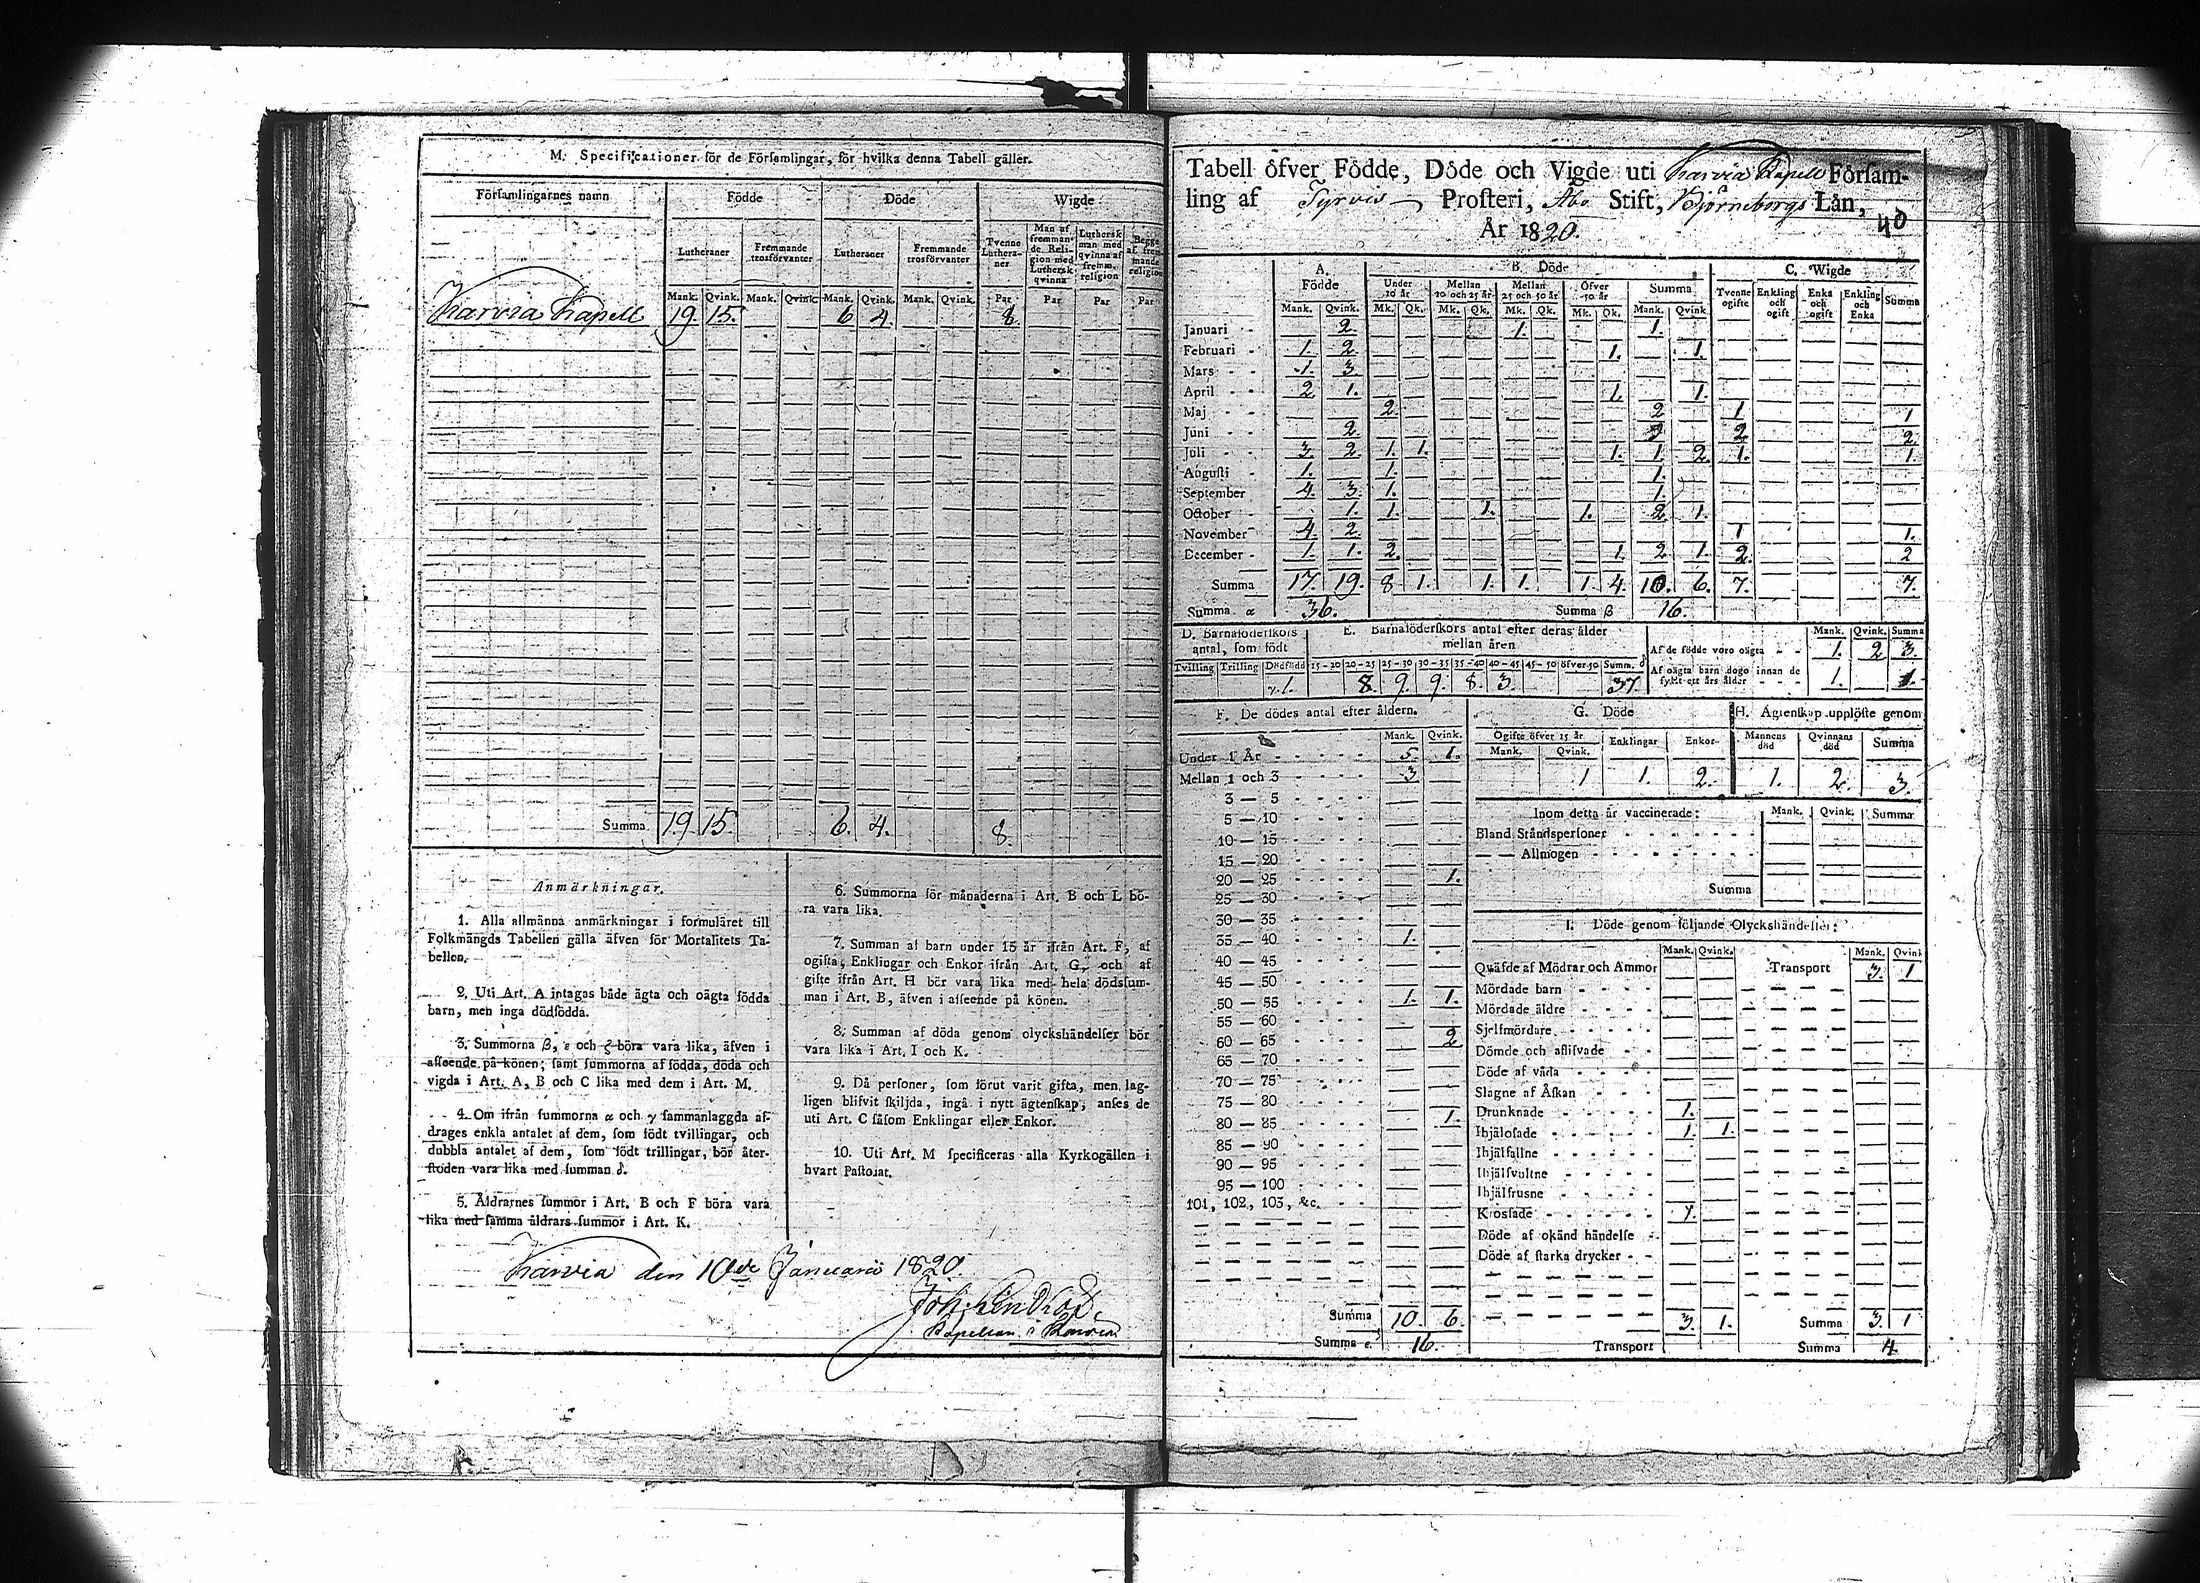 M. Specificationer för de Församlingar, för hvilka denna Tabell gäller.
Församlingarnes namn Födde Döde Wigde
Lutheraner Fremmande trosförvanter Lutheraner Fremmande trosförvanter Tvenne Lutheraner Man af fremmande Religion med Luthersk qvinna Luthersk man med qvinna af fremm. religion Begge af fremmande religion
Mank. Qvink. Mank. Qvink. Mank. Qvink. Mank. Qvink. Par Par Par Par
Karvia Kapell 19. 15. 6 4. 8.
Summa 19 15. 6. 4. 8.
Anmärkningar.
1. Alla allmänna anmärkningar i formuläret till
Folkmängds Tabellen gälla äfven för Mortalitets Ta-
bellen.
2. Uti Art. A intagas både ägta och oägta födda
barn, men inga dödfödda.
3. Summorna β, ε och ζ böra vara lika, äfven i
afseende på könen; samt summorna af födda, döda och
vigda i Art. A, B och C lika med dem i Art. M.
4. Om ifrån summorna α och γ sammanlaggda af-
drages enkla antalet af dem, som födt tvillingar, och
dubbla antalet af dem, som födt trillingar, bör åter-
stoden vara lika med summan δ.
5. Åldrarnes summor i Art. B och F böra vara
lika med samma åldrars summor i Art. K.
6. Summorna för månaderna i Art. B och L bö-
ra vara lika.
7. Summan af barn under 15 år ifrån Art. F, af
ogifta, Enklingar och Enkor ifrån Art. G, och af
gifte ifrån Art. H bör vara lika med hela dödssum-
man i Art. B, äfven i afseende på könen.
8. Summan af döda genom olyckshändelser bör
vara lika i Art. I och K.
9. Då personer, som förut varit gifta, men lag-
ligen blifvit skiljda, ingå i nytt ägtenskap, anses de
uti Art. C såsom Enklingar eller Enkor.
10. Uti Art. M specificeras alla Kyrkogällen i
hvart Pastorat.
Karvia den 10de Januarii 1820.
Kapellan i Karvia
Tabell öfver Födde, Döde och Vigde uti Karvia Kapell Församling
af Tyrvis Prosteri, Åbo Stift, Björneborgs Län,
År 1820.
40
A. Födde B. Döde C. Wigde
Under 10 år Mellan 10 och 25 år Mellan 25 och 50 år Öfver 50 år Summa Tvenne ogifte Enkling och ogift Enka och ogift Enkling och Enka Summa
Mank. Qvink. Mk. Qk. Mk. Qk. Mk. Qk. Mk. Qk. Mank. Qvink.
Januari 2 1. 1.
Februari 1. 2. 1. 1.
Mars 1. 3.
April 2 1. 1. 1.
Maj 2. 2 1 1
Juni 2. 2 2
Juli 3. 2 1. 1. 1. 1. 2 1. 1.
Augusti 1. 1. 1.
September 4. 3. 1. 1.
October 1. 1. 1. 1. 2 1.
November 4. 2. 1 1.
December 1. 1. 2. 1. 2 1. 2. 2
Summa 17. 19. 8 1. 1. 1. 1. 4. 10. 6. 7. 7.
Summa α 36. Summa β 16.
D. Barnaföderskors antal, som födt
Tvilling Trilling Dödfödd
γ. 1.
E. Barnaföderskors antal efter deras ålder mellan åren
15-20 20-25 25-30 30-35 35-40 40-45 45-50 öfver 50 Summ. δ
8. 9. 9. 8. 3. 37.
Mank. Qvink. Summa
Af de födde voro oägta 1. 2 3.
Af oägta barn dogo innan de fyllt ett års ålder 1. 1.
F. De dödes antal efter åldern.
Mank. Qvink.
Under 1 År 5. 1.
Mellan 1 och 3 3
3 — 5
5 — 10
10 — 15
15 — 20
20 — 25 1.
25 — 30
30 — 35
35 — 40 1.
40 — 45
45 — 50
50 — 55 1. 1.
55 — 60
60 — 65 2
65 — 70
70 — 75
75 — 80
80 — 85 1.
85 — 90
90 — 95
95 — 100
101, 102, 103, &c.
Summa 10. 6.
Summa ε. 16.
G. Döde
Ogifte öfver 15 år Enklingar Enkor
Mank. Qvink.
1 1. 2.
H. Ägtenskap upplöste genom
Mannens död Qvinnans död Summa
1. 2. 3.
Inom detta år vaccinerade: Mank. Qvink. Summa
Bland Ståndspersoner
— — Allmogen
Summa
I. Döde genom följande Olyckshändelser:
Mank. Qvink. Mank. Qvink
Quäfde af Mödrar och Ammor Transport 3. 1
Mördade barn
Mördade äldre
Sjelfmördare
Dömde och aflifvade
Döde af våda
Slagne af Åskan
Drunknade 1.
Ihjälosade 1. 1.
Ihjälfallne
Ihjälsvultne
Ihjälfrusne
Krossade 1.
Döde af okänd händelse
Döde af starka drycker
3. 1. Summa 3. 1
Transport Summa 4.